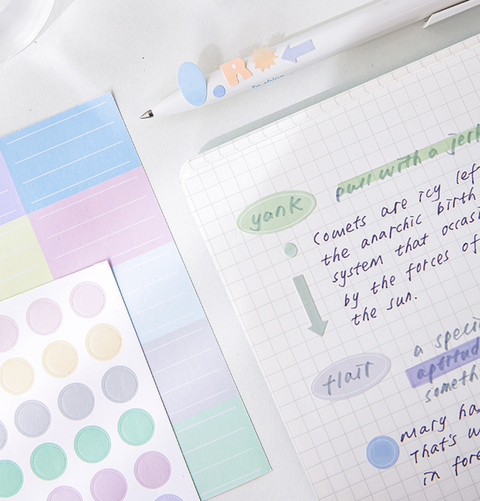 R
yank
pull with a jerk
Comets are icy
the anarchic birth
system that
by the forces of
the sun.
flait
a
aptitud
someth
Mary ha
That's w
in fore